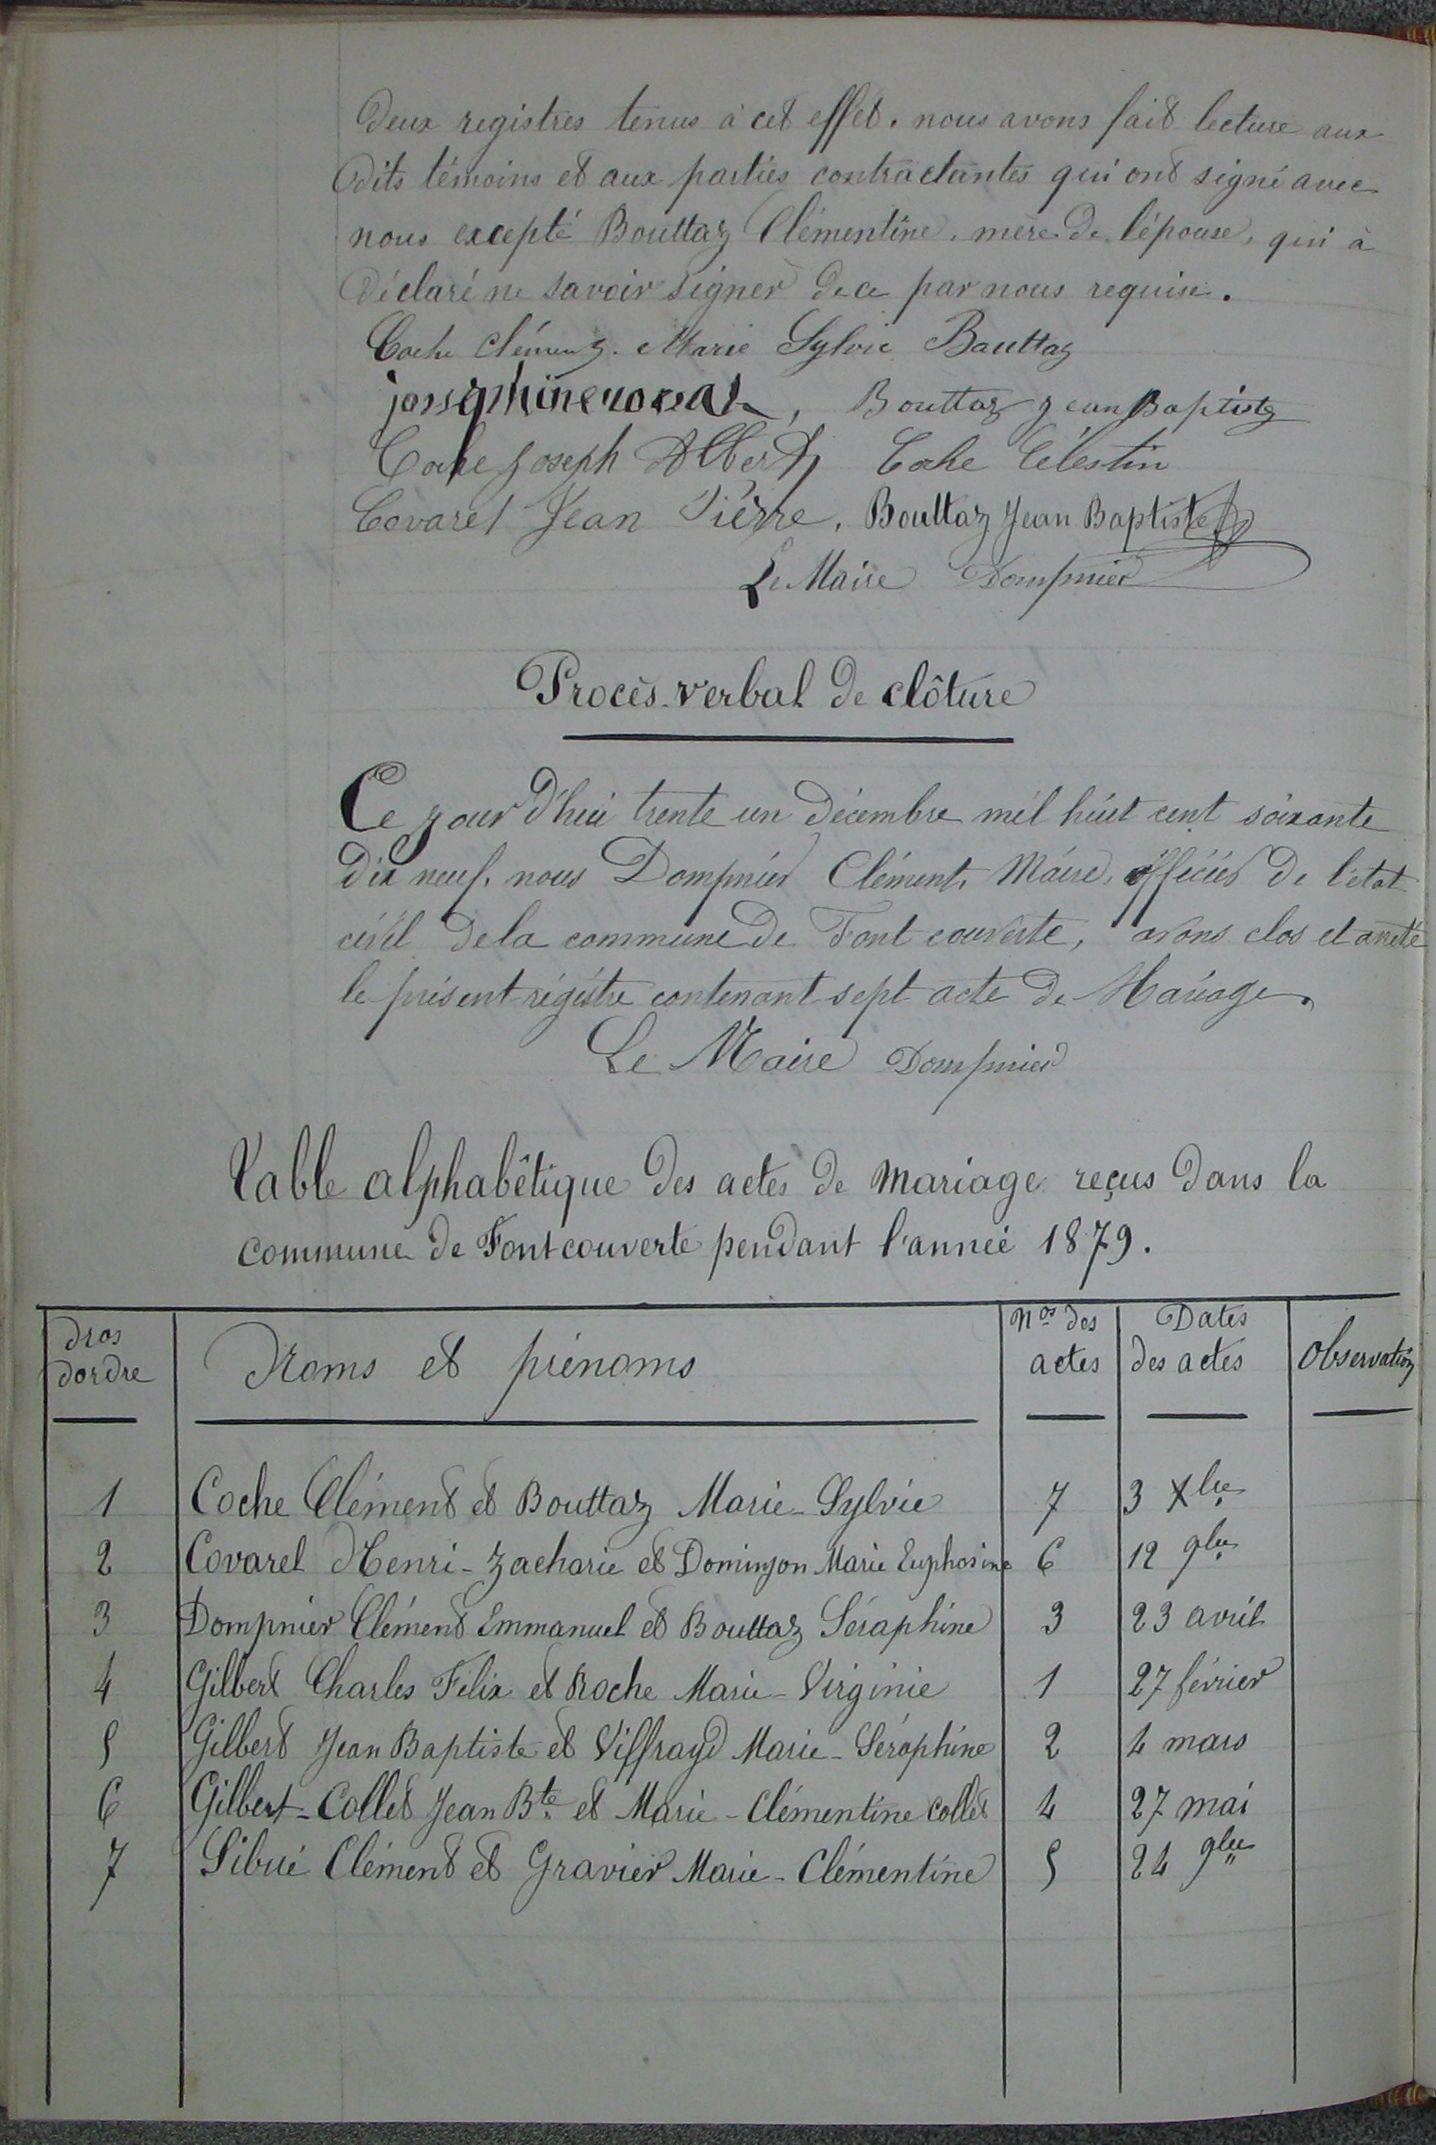 deux registres tenus à cet effet. nous avons fait lecture aux
dits témoins et aux parties contractantes qui ont signé avec
nous excepté Bouttaz Clémentine, mère de l'épouse, qui à
déclaré ne savoir signer de ce par nous requise.
Coche Clément. Marie Sylvie Bouttaz
Bouttaz Jean Baptiste
Coche Joseph Albert Coche Célestin
Covarel Jean Pierre, Bouttaz Jean Baptiste
Le Maire Dompnier
Procès-verbal de clôture
Ce jour d'hui trente un Décembre mil huit cent soixante
dix neuf, nous Dompnier Clément, Maire, officier de l'état
civil de la commune de Font couverte, avons clos et arrêté
le présent régistre contenant sept acte de Mariage.
Le Maire Dompnier
Table alphabêtique des actes de mariage reçus dans la
commune de Fontcouverte pendant l'année 1879.
Nros dordre Noms et prénoms Nos des actes Dates des actes Observation
1 Coche Clément et Bouttaz Marie-Sylvie 7 3 Xbre
2 Covarel Henri-Zacharie et Dominjon Marie Euphosine 6 12 9bre
3 Dompnier Clément Emmanuel et Bouttaz Séraphine 3 23 avril
4 Gilbert Charles Félix et Roche Marie-Virginie 1 27 février
5 Gilbert Jean Baptiste et Viffrayd Marie-Séraphine 2 4 mars
6 Gilbert-Collet Jean Bte et Marie-Clémentine Collet 4 27 mai
7 Sibué Clément et Gravier Marie-Clémentine 5 24 9bre